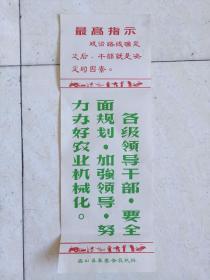 最高指示
政治路线确定
之后，干部就是决
定的因素。
各级领导干部·要全
面规划·加強领导·努
力办好农业机械化。
山县革委会农机站